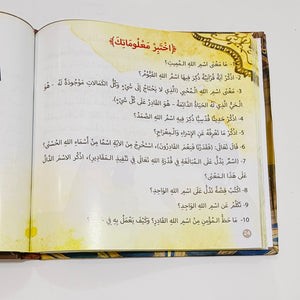 ﴿اخْتَبِرْ مَعْلُومَاتِكَ﴾
1- مَا مَعْنَى اسْمِ اللهِ الْمُمِيتِ؟
2- اذْكُرْ آيَةً قُرْآنِيَّةً ذُكِرَ فِيهَا اسْمُ اللهِ الْقَيُّومُ؟
3- مَا مَعْنَى اسْمِ اللهِ الْمُحْيِي (الَّذِي لَا يَحْتَاجُ إِلَى شَيْءٍ، وَكُلُّ الْكَمَالَاتِ مَوْجُودَةٌ لَهُ - هُوَ
الْحَيُّ الَّذِي لَهُ الْحَيَاةُ الدَّائِمَةُ - هُوَ الْقَادِرُ عَلَى كُلِّ شَيْءٍ)؟
4- اذْكُرْ حَدِيثًا ذُكِرَ فِيهِ اسْمُ اللهِ الصَّمَدُ؟
5- اذْكُرْ مَا تَعْرِفُهُ عَنِ الْإِسْرَاءِ وَالْمِعْرَاجِ؟
6- قَالَ تَعَالَى: ﴿فَقَدَرْنَا فَنِعْمَ الْقَادِرُونَ﴾، اسْتَخْرِجْ مِنَ الْآيَةِ اسْمًا مِنْ أَسْمَاءِ اللهِ الْحُسْنَى؟
7- (اسْمٌ يَدُلُّ عَلَى الْمُبَالَغَةِ فِي قُدْرَةِ اللهِ تَعَالَى فِي تَنْفِيذِ الْمَقَادِيرِ)، اذْكُرِ الِاسْمَ الدَّالَّ
عَلَى هَذَا الْمَعْنَى؟
8- اكْتُبْ قِصَّةً تَدُلُّ عَلَى اسْمِ اللهِ الْوَاحِدِ؟
9- تَكَلَّمْ عَنِ اسْمِ اللهِ الْوَاجِدِ؟
10- مَا حَظُّ الْمُؤْمِنِ مِنْ اسْمِ اللهِ الْقَادِرِ؟ وَكَيْفَ يَعْمَلُ بِهِ فِي
24